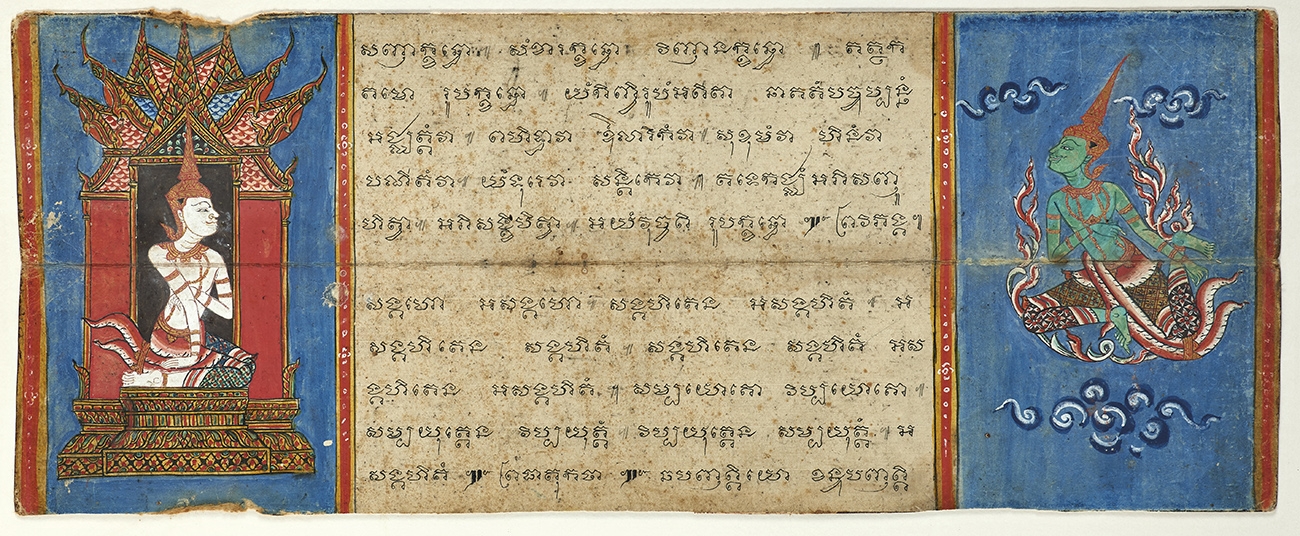 សញ្ញាក្ខន្ធោ៕ សំខារក្ខន្ធោ វិញ្ញានក្ខន្ធោ ៕ តត្ថក
តមោ រូបក្ខន្ធោ ៕ យំកិញ្ចិរូបំអតីតា នាគតំបច្ចុប្បន្នំ
អជ្ឈត្តំវា ពហិទ្ធាវា ឱឡារិកំវា៕ សុខុមំវា ហិនំវា
បណីតំវា៕ យំទូរេវា សន្តិកេវា៕ តទេកជ្ឈំ អភិសញ្ញូ
ហិត្វា៕ អភិសង្ខិបិត្វា៕ អយំវុច្ចតិ រូបក្ខន្ធោ ៚ ព្រវិភង្គ៕
សង្គហោ អសង្គហោ៕ សង្គហិតេន អសង្គហិតំ៕ អ
សង្គហិតេន សង្គហិតំ៕ សង្គហិតេន សង្គហិតំ អស
ង្គហិតេន អសង្គហិតំ៕ សម្បយោគោ វិប្បយោគោ៕
សម្បយុត្តេន វិប្បយុត្តំ៕ វិប្បយុត្តេន សម្បយុត្តំ៕ អ
សង្គហិតំ ៚ ព្រធាតុកថា ៚ ឆបញ្ញត្តិយោ ខន្ធបញ្ញត្តិ